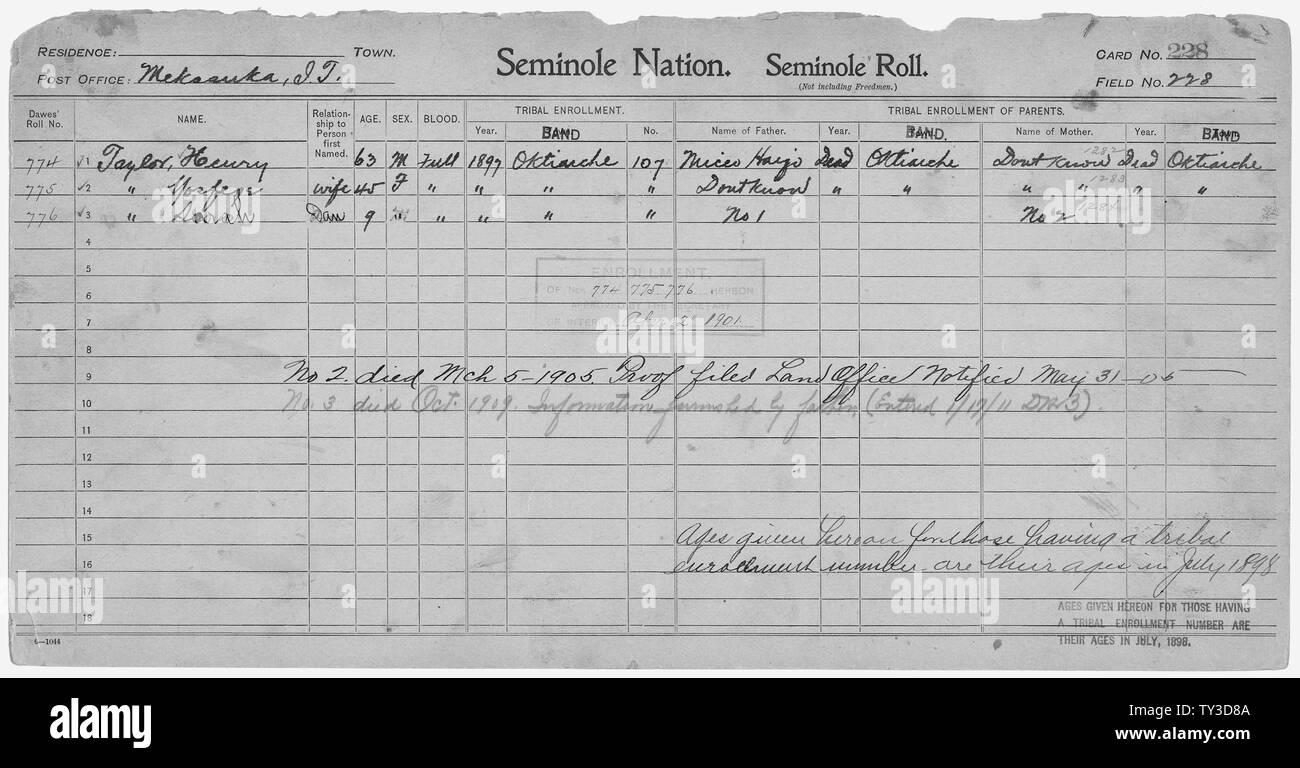 RESIDENCE: TOWN.
POST OFFICE: Mekasuka, I.T.
Seminole Nation. Seminole Roll.
(Not including Freedmen.)
CARD NO. 228
FIELD NO. 228
Dawes' Roll No. NAME. Relationship to Person first Named. AGE. SEX. BLOOD. TRIBAL ENROLLMENT. TRIBAL ENROLLMENT OF PARENTS.
Year. BAND No. Name of Father. Year. BAND. Name of Mother. Year. BAND
774 √1 Taylor, Henry 63 M Full 1897 Oktiarche 107 Micco Harjo Dead Oktiarche Dont Know 1282 Dead Oktiarche
775 √2 " wife 45 F " " " " Dont Know " " " " 1283 " "
776 √3 " Dau 9 " " " " " No 1 No 2
4
5
6
7
8
9
10
11
12
13
14
15
16
17
18
ENROLLMENT
OF NOS. 774 775 776 HEREON
APPROVED BY THE SECRETARY
OF INTERIOR 2 1901
No 2. died Mch 5-1905. Proof filed Land Office Notified May 31-05
No. 3 died Oct. 1909. Information furnished by father (Entered 1/17/11 )
Ages given hereon for those having a tribal
enrollment number are their ages in July 1898
AGES GIVEN HEREON FOR THOSE HAVING
A TRIBAL ENROLLMENT NUMBER ARE
THEIR AGES IN JULY, 1898.
6—1044
alamy
Image ID: TY3D8A
www.alamy.com